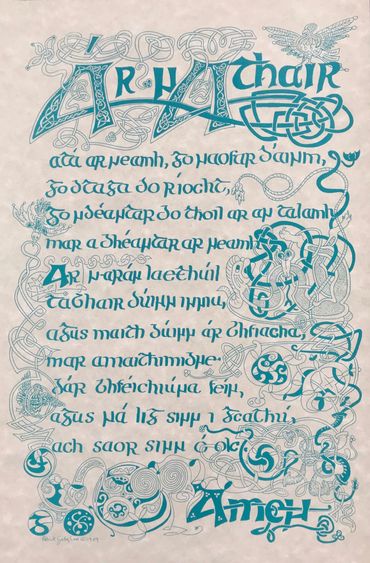 Ár n Athair
atá ar neamh, go naofar d'ainm,
go dtaga do ríocht,
go ndéantar do thoil ar an talamh
mar a dhéantar ar neamh
Ár n-arán laethúil
tabhair dúinn inniu,
agus maith dúinn ár bhfiacha,
mar a maithimidne
dár bhféichiúna féin,
agus ná lig sinn i gcathú,
ach saor sinn ó olc
Amen